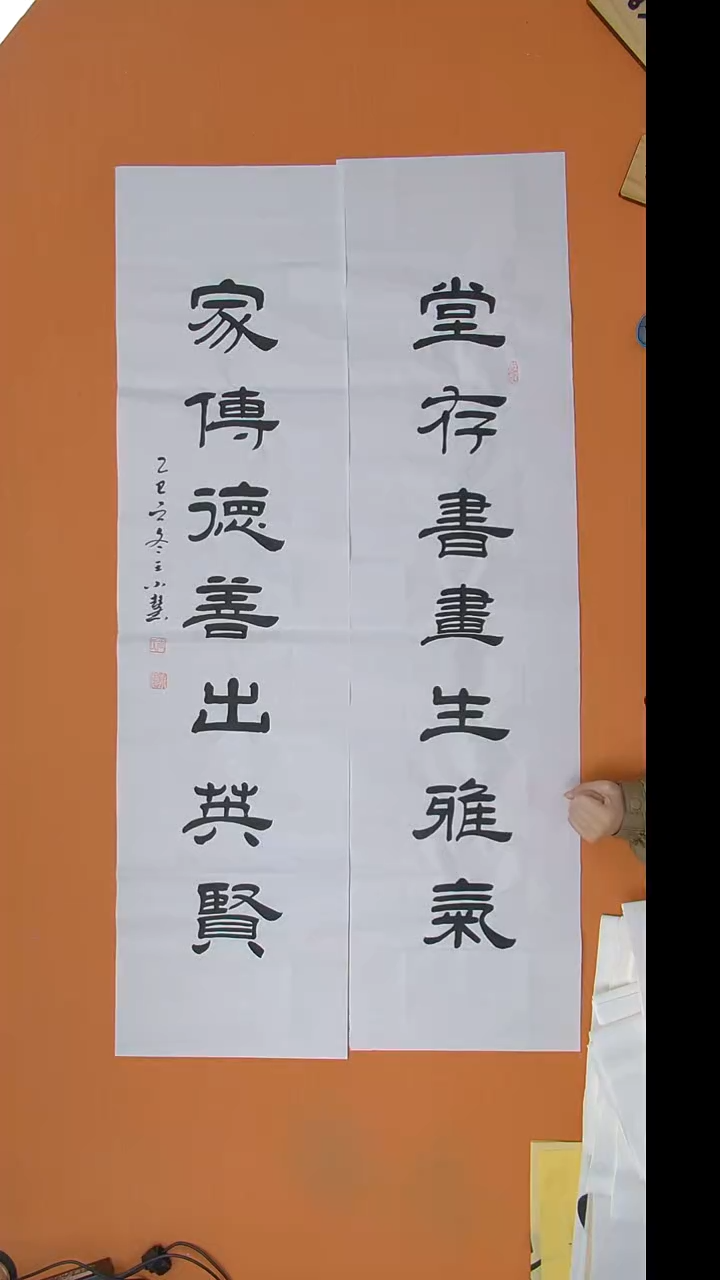 堂存書畫生雅氣
家傳德善出英賢
乙巳立冬王小慧